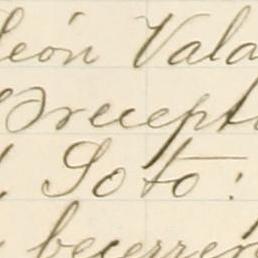 León Vala
Precept
Soto:
becerrer